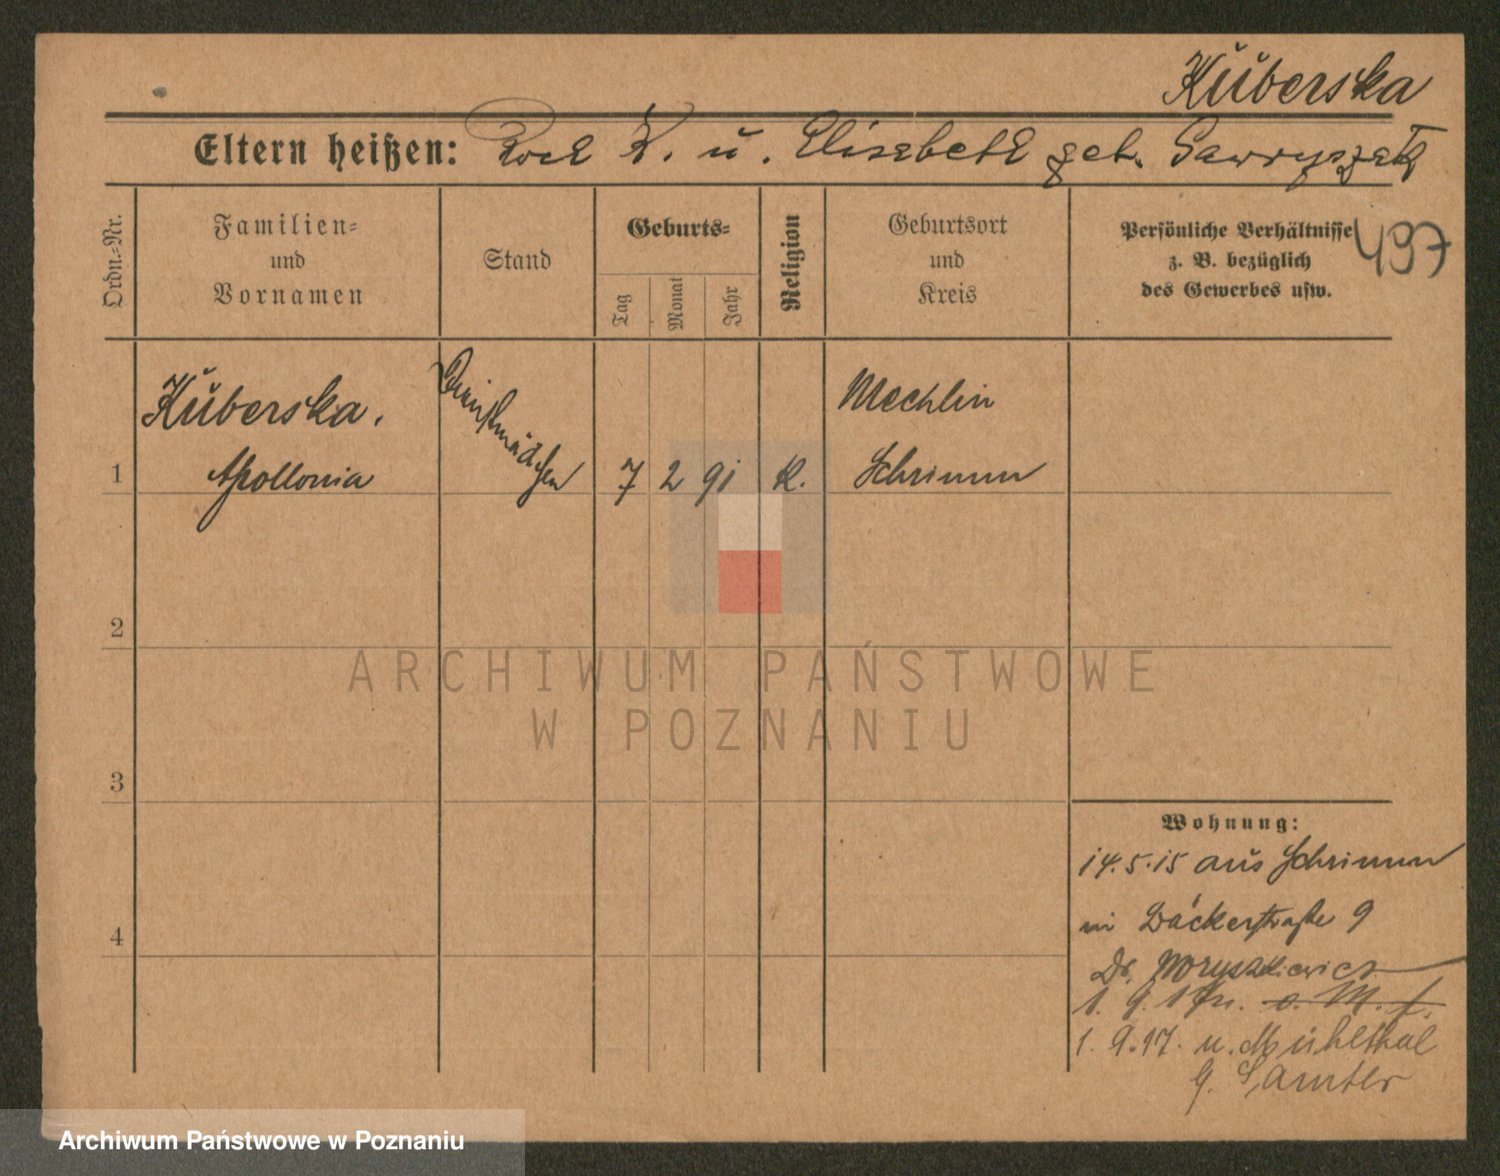 Kuberska
Eltern heißen: Rock K. u. Elisabeth geb. Gawryszak
Ordn.-Nr.
Familien-
und
Vornamen
Stand
Geburts-
Tag
Monat
Jahr
Religion
Geburtsort
und
Kreis
Persönliche Verhältnisse
z. B. bezüglich
des Gewerbes usw.
497
1
Kuberska.
Apollonia
Dienstmädchen
7 2 91 K.
Mechlin
Schrimm
2
3
4
Wohnung:
14.5.15 aus Schrimm
in Bäckerstraße 9
Dr.
1. 9. 17 n.
1. 9. 17. n. Mühlthal
G. Samter
ARCHIWUM PAŃSTWOWE
W POZNANIU
Archiwum Państwowe w Poznaniu